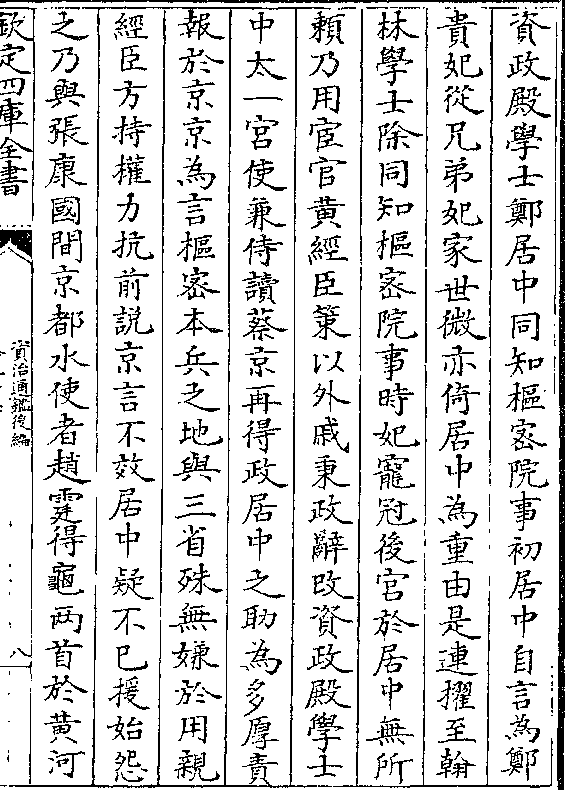 資政殿學士鄭居中同知樞宻院事初居中自言為鄭
貴妃從兄弟妃家世微亦倚居中為重由是連擢至翰
林學士除同知樞宻院事時妃寵冠後宫於居中無所
賴乃用宦官黄經臣策以外戚秉政辭改資政殿學士
中太一宫使兼侍讀蔡京再得政居中之助為多厚責
報於京京為言樞宻本兵之地與三省殊無嫌於用親
經臣方持權力抗前説京言不效居中疑不已援始怨
之乃與張康國間京都水使者趙霆得龜两首於黄河
欽定四庫全書
資治通鑑後編
八